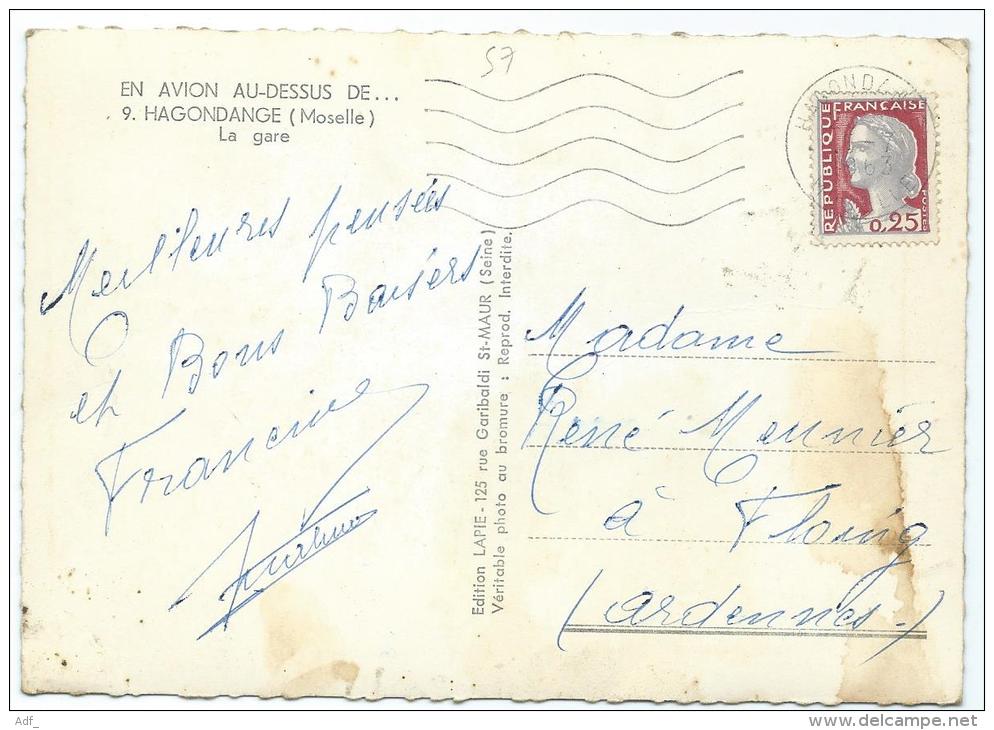 57
EN AVION AU-DESSUS DE...
9. HAGONDANGE (Moselle)
La gare
HAGONDANGE
1963
REPUBLIQUE FRANÇAISE
POSTES
0,25
Meilleures pensées
et Bons Baisers
Francine
Edition LAPIE - 125 rue Garibaldi St-MAUR (Seine)
Véritable photo au bromure : Reprod. Interdite.
Madame
René Meunier
à Floing
(Ardennes.)
Adf_
www.delcampe.net